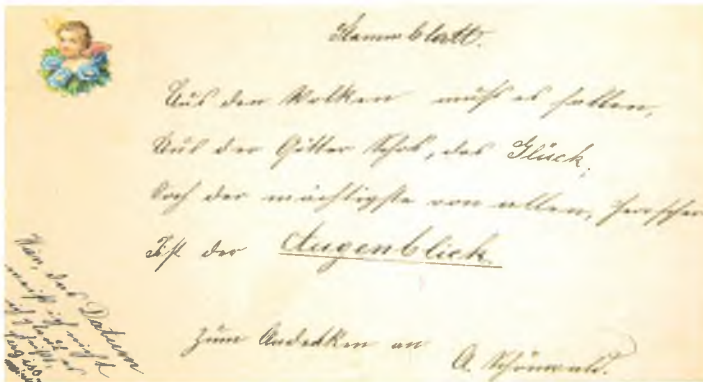 Stammblatt.
Aus den Wolken muß es fallen,
Aus der Götter Schoß, das Glück,
Doch der mächtigste von allen, Herrscher
Ist der Augenblick.
Zum Andenken an
A. Schönwald.
das Datum
weiß ich nicht